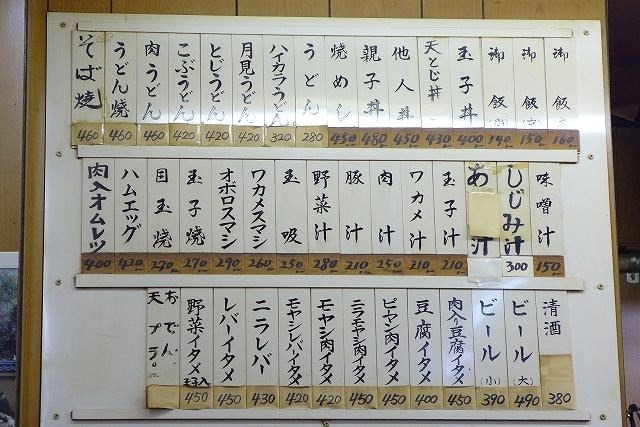 御飯(大) 160
御飯 150
御飯(小) 140
玉子丼 400
天とじ丼 430
他人丼 450
親子丼 480
焼めし 450
うどん 280
ハイカラうどん 320
月見うどん 420
とじうどん 420
こぶうどん 420
肉うどん 460
うどん焼 460
そば焼 460
味噌汁 150
しじみ汁 300
あ 汁
玉子汁 210
ワカメ汁 210
肉汁 250
豚汁 210
野菜汁 280
玉吸 250
ワカメスマシ 260
オボロスマシ 290
玉子焼 270
目玉焼 270
ハムエッグ 420
肉入オムレツ 400
清酒 380
ビール(大) 490
ビール(小) 390
肉入り豆腐イタメ 450
豆腐イタメ 400
ピーヤシ肉イタメ 450
ニラモヤシ肉イタメ 450
モヤシ肉イタメ 420
モヤシレバーイタメ 420
ニラレバー 430
レバーイタメ 450
野菜イタメ 玉子入 450
おでん
天プラ